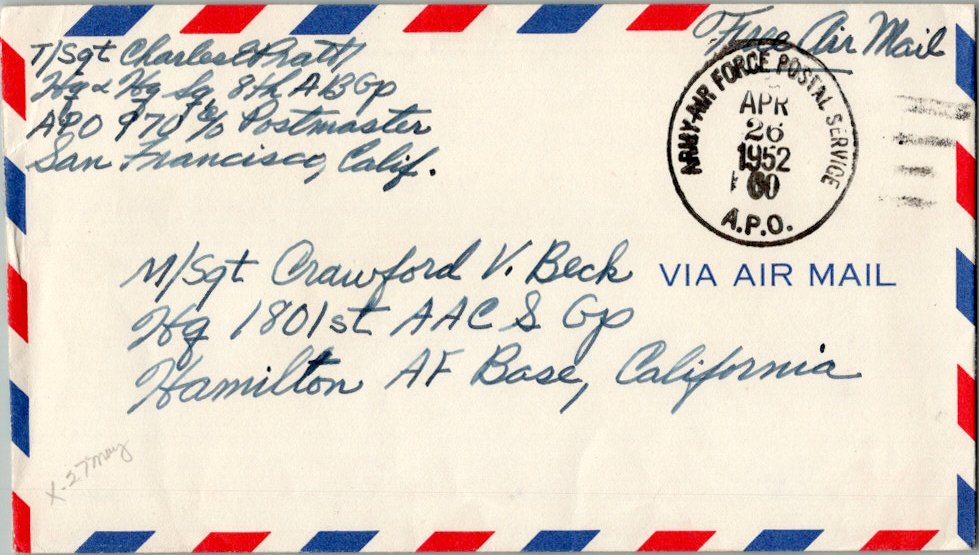 Free Air Mail
T/Sgt Charles E Pratt
Hq & Hq Sq 8th A B Gp
APO 970 c/o Postmaster
San Francisco, Calif.
ARMY-AIR FORCE POSTAL SERVICE
APR
26
1952
60
A.P.O.
M/Sgt Crawford V. Beck
VIA AIR MAIL
Hq 1801st AAC S Gp
Hamilton AF Base, California
X-27 May